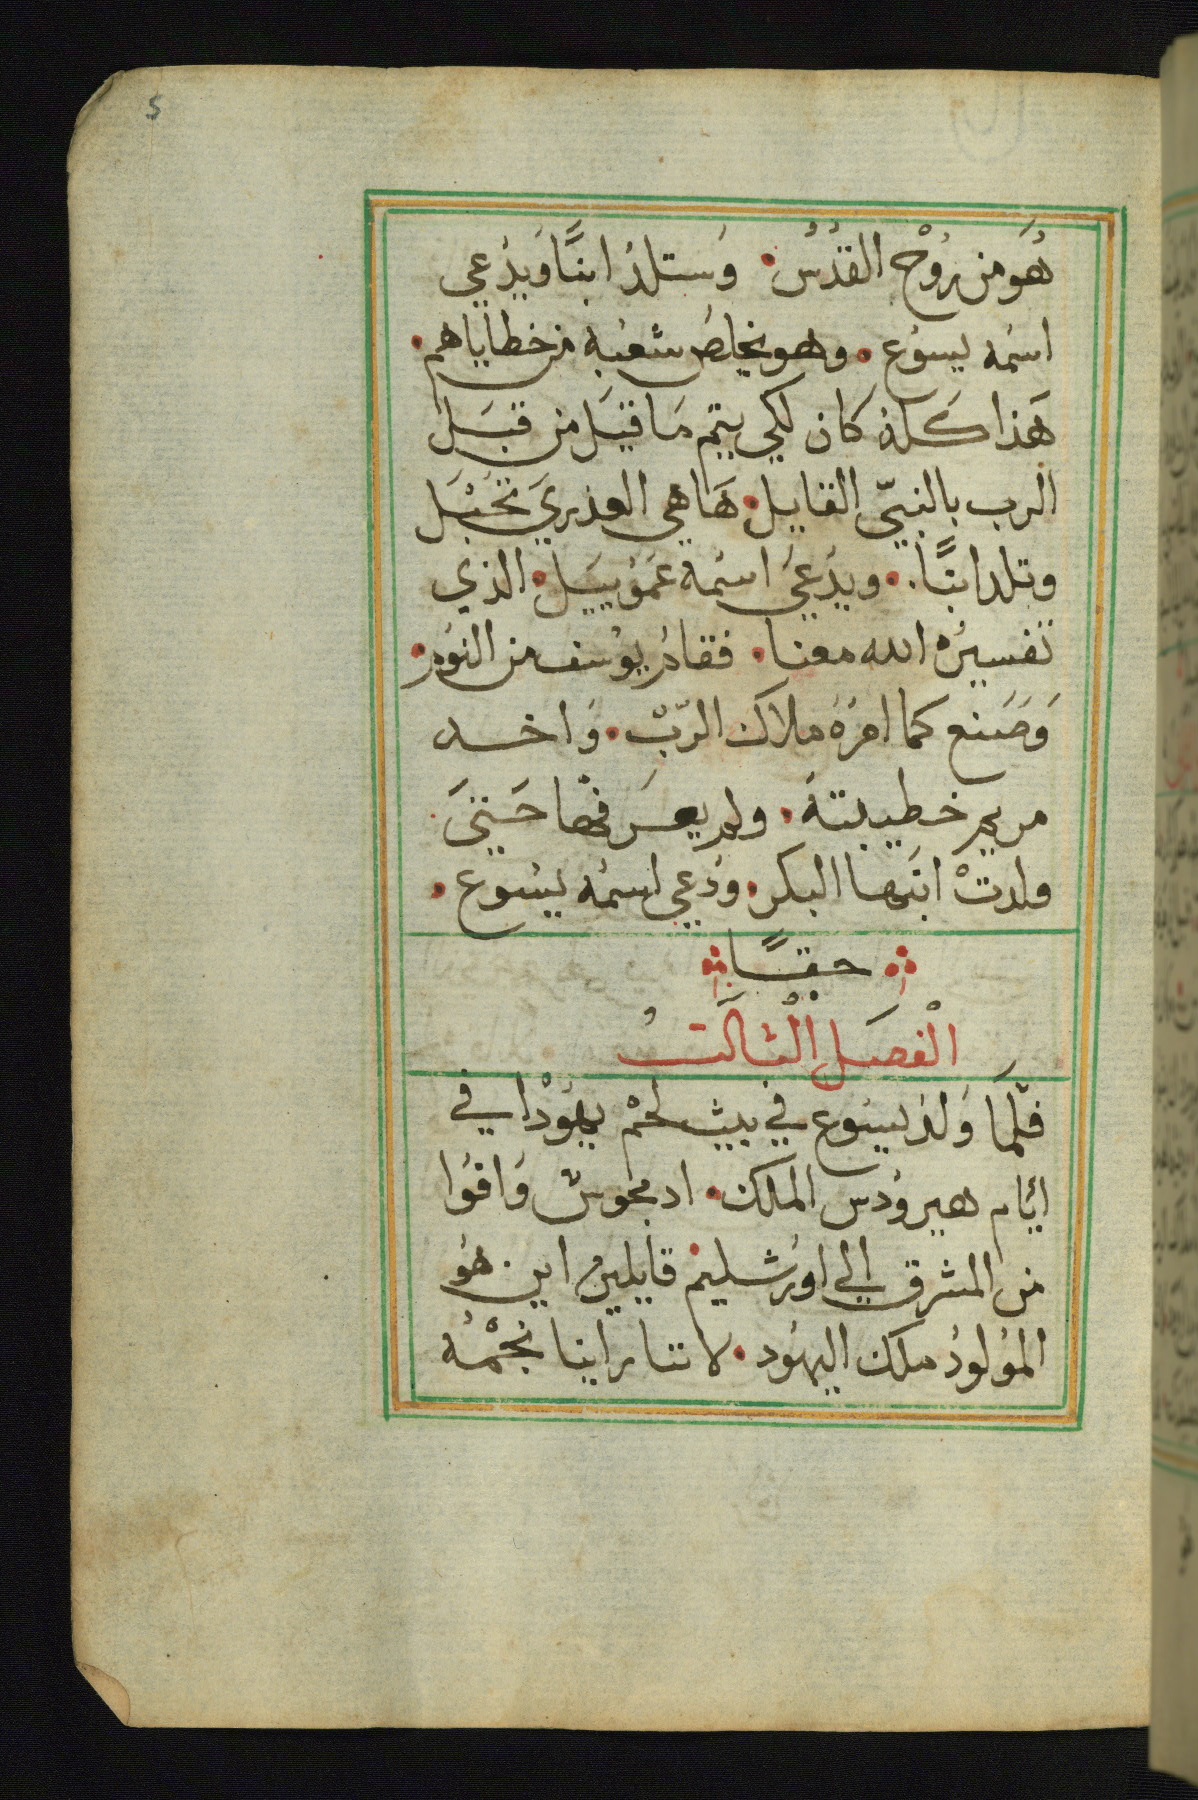 5
هُوَ من رُوْح القدُسُ • وَستلدُ ابنًا وَيدُعي
اسمُه يسوُع • وهو يخلصَ شعبُه من خطاياهم •
هَذا كَلهُ كان لكي يتم مَا قيَل من قبَل
الرب بالنبيّ القايل • هَا هي العذريَ تحَبْل
وتلد ابنًا • • ويدَعيَ اسمُه عَمنوييَل • الذي
تفسيرُه الله معنا • فقامُ يوُسف من النوُم •
وَصَنع كما امرُهَ ملاك الرّبْ • وَاخد
مريم خطيبتهَ • ولم يعرَفها حَتيَ
ولدتْ ابنَها البكر • ودُعي اسمُه يسُوع •
حقًا
الْفصَل الْثالَتُ
فلمَا وَلدُ يسوُع في بيت لحْم يهوُدْا في
ايّام هيروُدس الملك • اد مجوسٌ وَافوُا
من المشرق الي اورُشليمْ قايلينْ اين هوُ
الموُلودُ ملك اليهوُد • لاننا راينا نجْمهُ